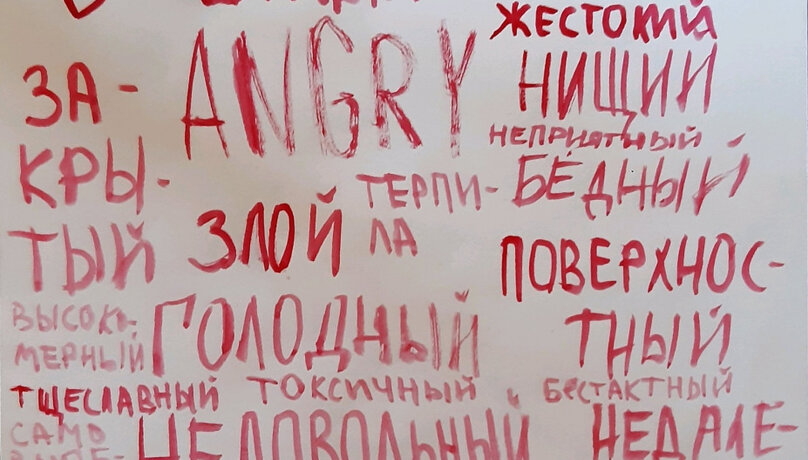 ЖЕСТОКИЙ
ЗА-
КРЫ-
ТЫЙ
ANGRY
НИЩИЙ
НЕПРИЯТНЫЙ
БЕДНЫЙ
ЗЛОЙ
ТЕРПИ-
ЛА
ПОВЕРХНОС-
ТНЫЙ
ВЫСОКО-
МЕРНЫЙ
ГОЛОДНЫЙ
ТЩЕСЛАВНЫЙ
ТОКСИЧНЫЙ
БЕСТАКТНЫЙ
САМО
НЕДОВОЛЬНЫЙ
НЕДАЛЕ-